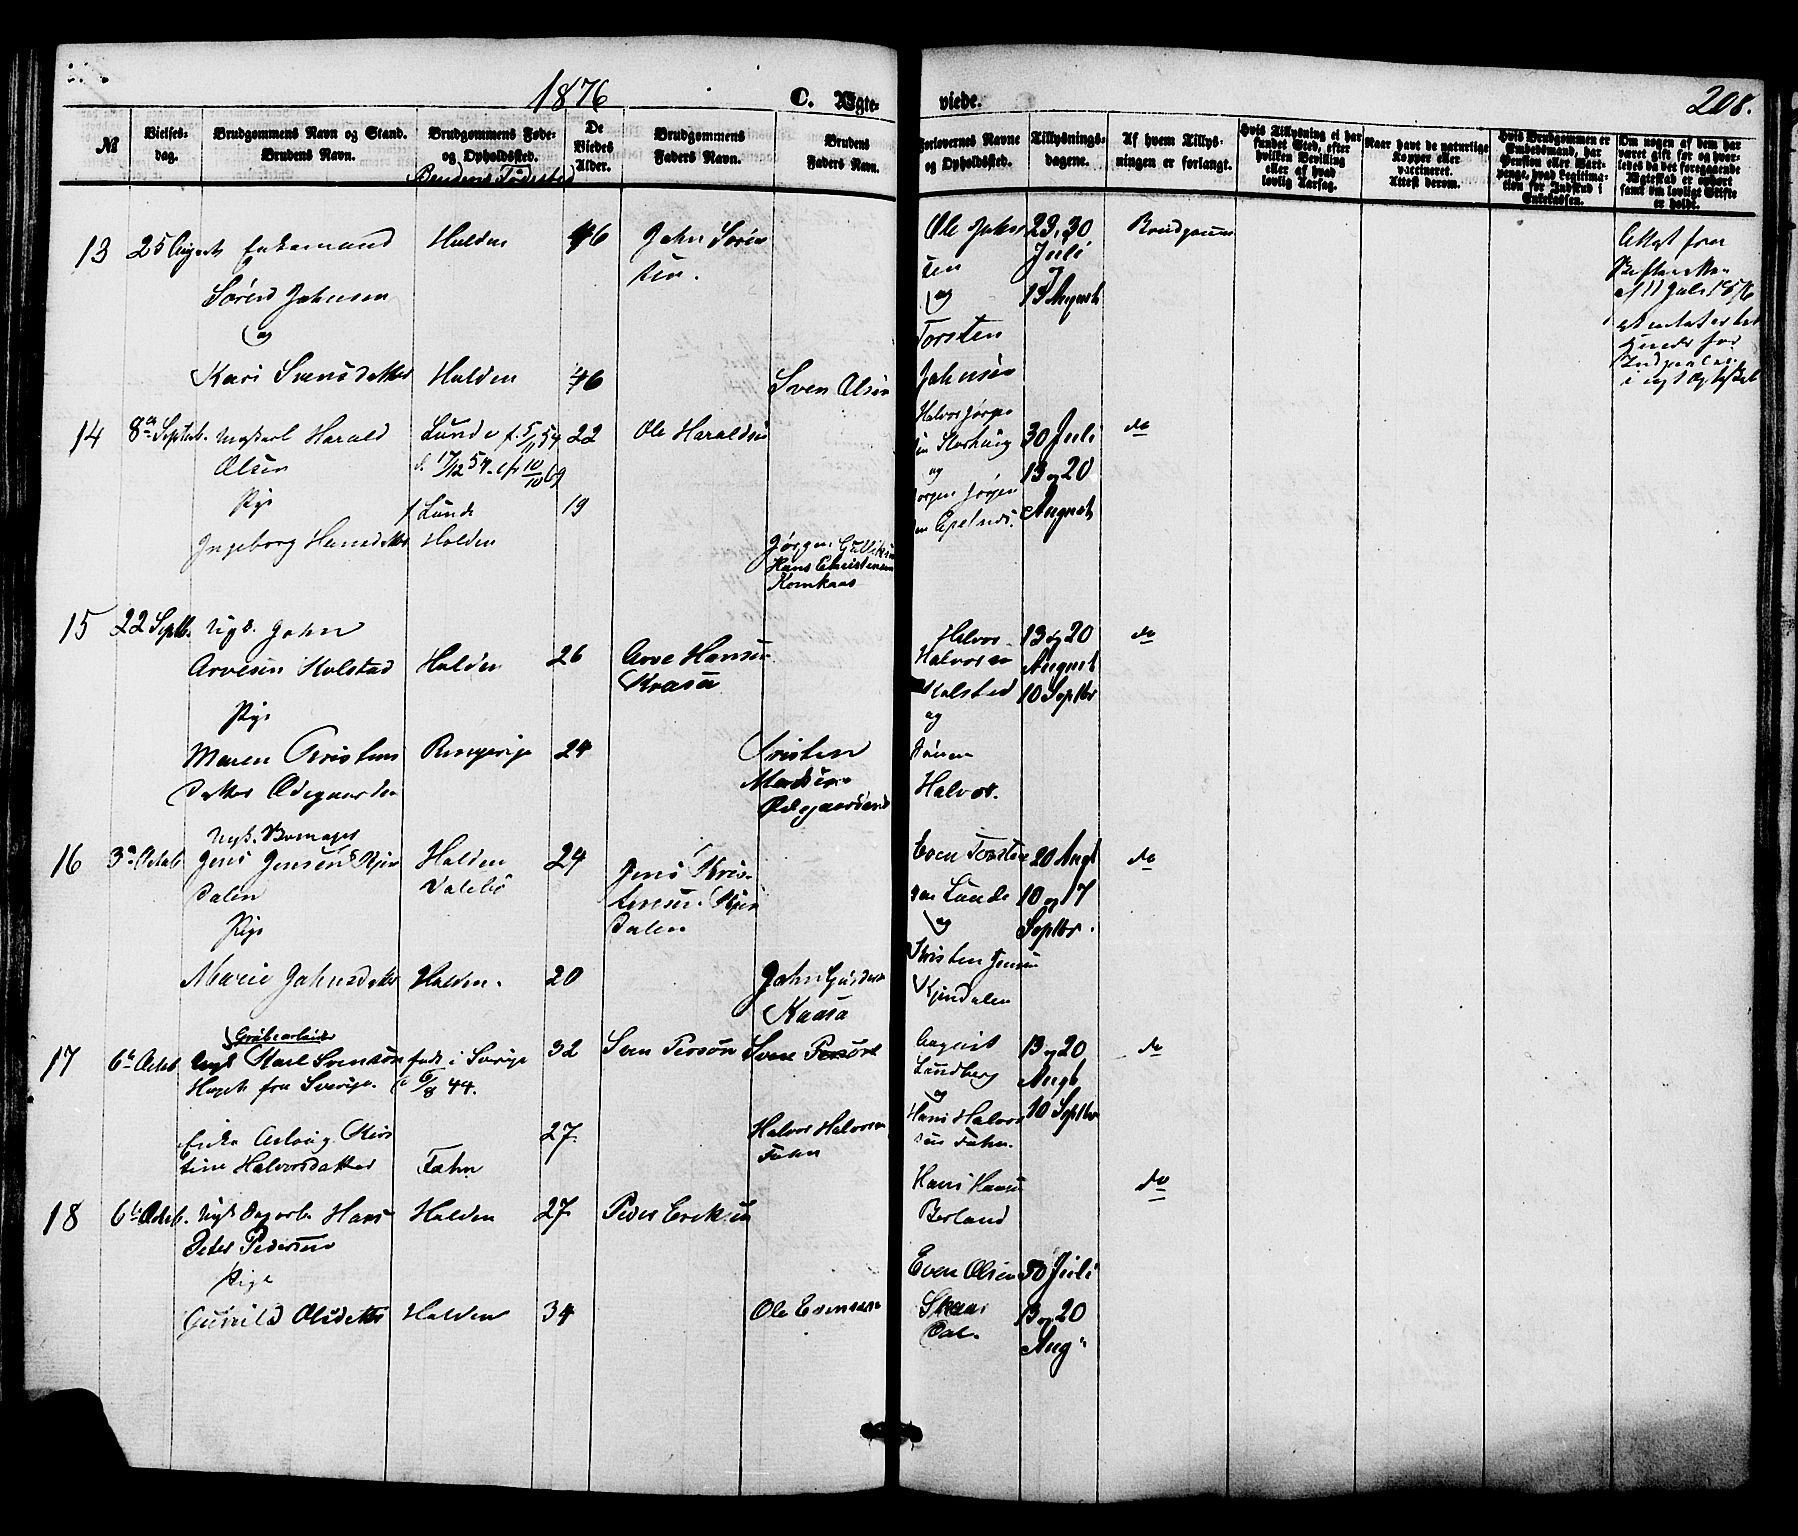 1876
C. Ægte-
viede.
208.
№
Vielses-
dag.
Brudgommens Navn og Stand.
Brudens Navn.
Brudgommens Føde-
og Opholdssted.
Brudens Fødested
De
Viedes
Alder.
Brudgommens
Faders Navn.
Brudens
Faders Navn.
Forlovernes Navne
og Opholdssted.
Tillysnings-
dagene.
Af hvem Tillys-
ningen er forlangt.
Hvis Tillysning ei har
fundet Sted, efter
hvilken Bevilling
eller af hvad
lovlig Aarsag.
Naar havt de naturlige
Kopper eller
vaccineret.
Attest derom.
Hvis Brudgommen er
Embedsmand, har
Pension eller Vart-
penge, hvad Legitima-
tion for Indskud i
Enkekassen.
Om nogen af dem har
været gift før og hvor-
ledes da det foregaaende
Ægteskab er ophørt
samt om lovligt Skifte
er holdt.
13
25 August
Enkemand
Søren Johnsen
og
Kari Svensdatter
Holden
Holden
46
46
John Søren
sen.
Sven Olsen
Ole John
sen
og
Torsten
Johnsen
23, 30
Juli
og
13 August
Brudgommen
Attest fra
Skifteretten
af 11 Juli 1876
14
8de Septeb.
Harald
Olsen
Pige
Ingeborg Hansdatter
Lunde f. 5/11 54
d. 17/12 54. cf 10/10 69
f Lunde
Holden
22
19
Ole Haraldsen
Jørgen Gulliksen
Hans Christensen
Komkaas
Halvor Jørgen
sen
og
Jørgen Jørgen
sen
30 Juli
13 og 20
August
do
15
22 Septb.
Ungk. John
Arvesen Holstad
Pige
Maren Kristens
datter Ødegaarden
Holden
Ringerige
26
24
Arve Hansen
Kristen
Madsen
Ødegaarden
Halvor
Halvorsen
Holstad
og
Halvor.
13 og 20
August
10 Septbr
do
16
3die Octob
Ungk.
Jens Jensen Kjen
dalen
Pige
Marie Johnsdatter
Holden
Valebø
Holden.
24
20
Jens Kris-
tensen Kjen
dalen
John
Kaasa
Even Torsten
sen Lunde
og
Kristen Jensen
Kjendalen
20 Augt
10 og 17
Septbr.
do
17
6te Octob
Grubearbeider
Ungk Karl Svenson
fra Sverige.
Enke Aslaug Kirs
tine Halvorsdatter
født i Sverige
6/8 44.
Fahn
32
27
Sven Person
Sven Person
Halvor Halvorsen
Fahn
August
Lundberg
og
Hans Halvor
sen Fahn.
13 og 20
Augt
10 Septbr
do
18
6te Octob.
Ungk Dagarb. Hans
Peter Pedersen
Pige
Gunild Olsdatter
Holden
Holden
27
34
Peder Eriksen
Ole Evensen
Hans Hansen
Berland
Even Olsen
Skaar
dal.
30 Juli
13 og 20
Aug.
do